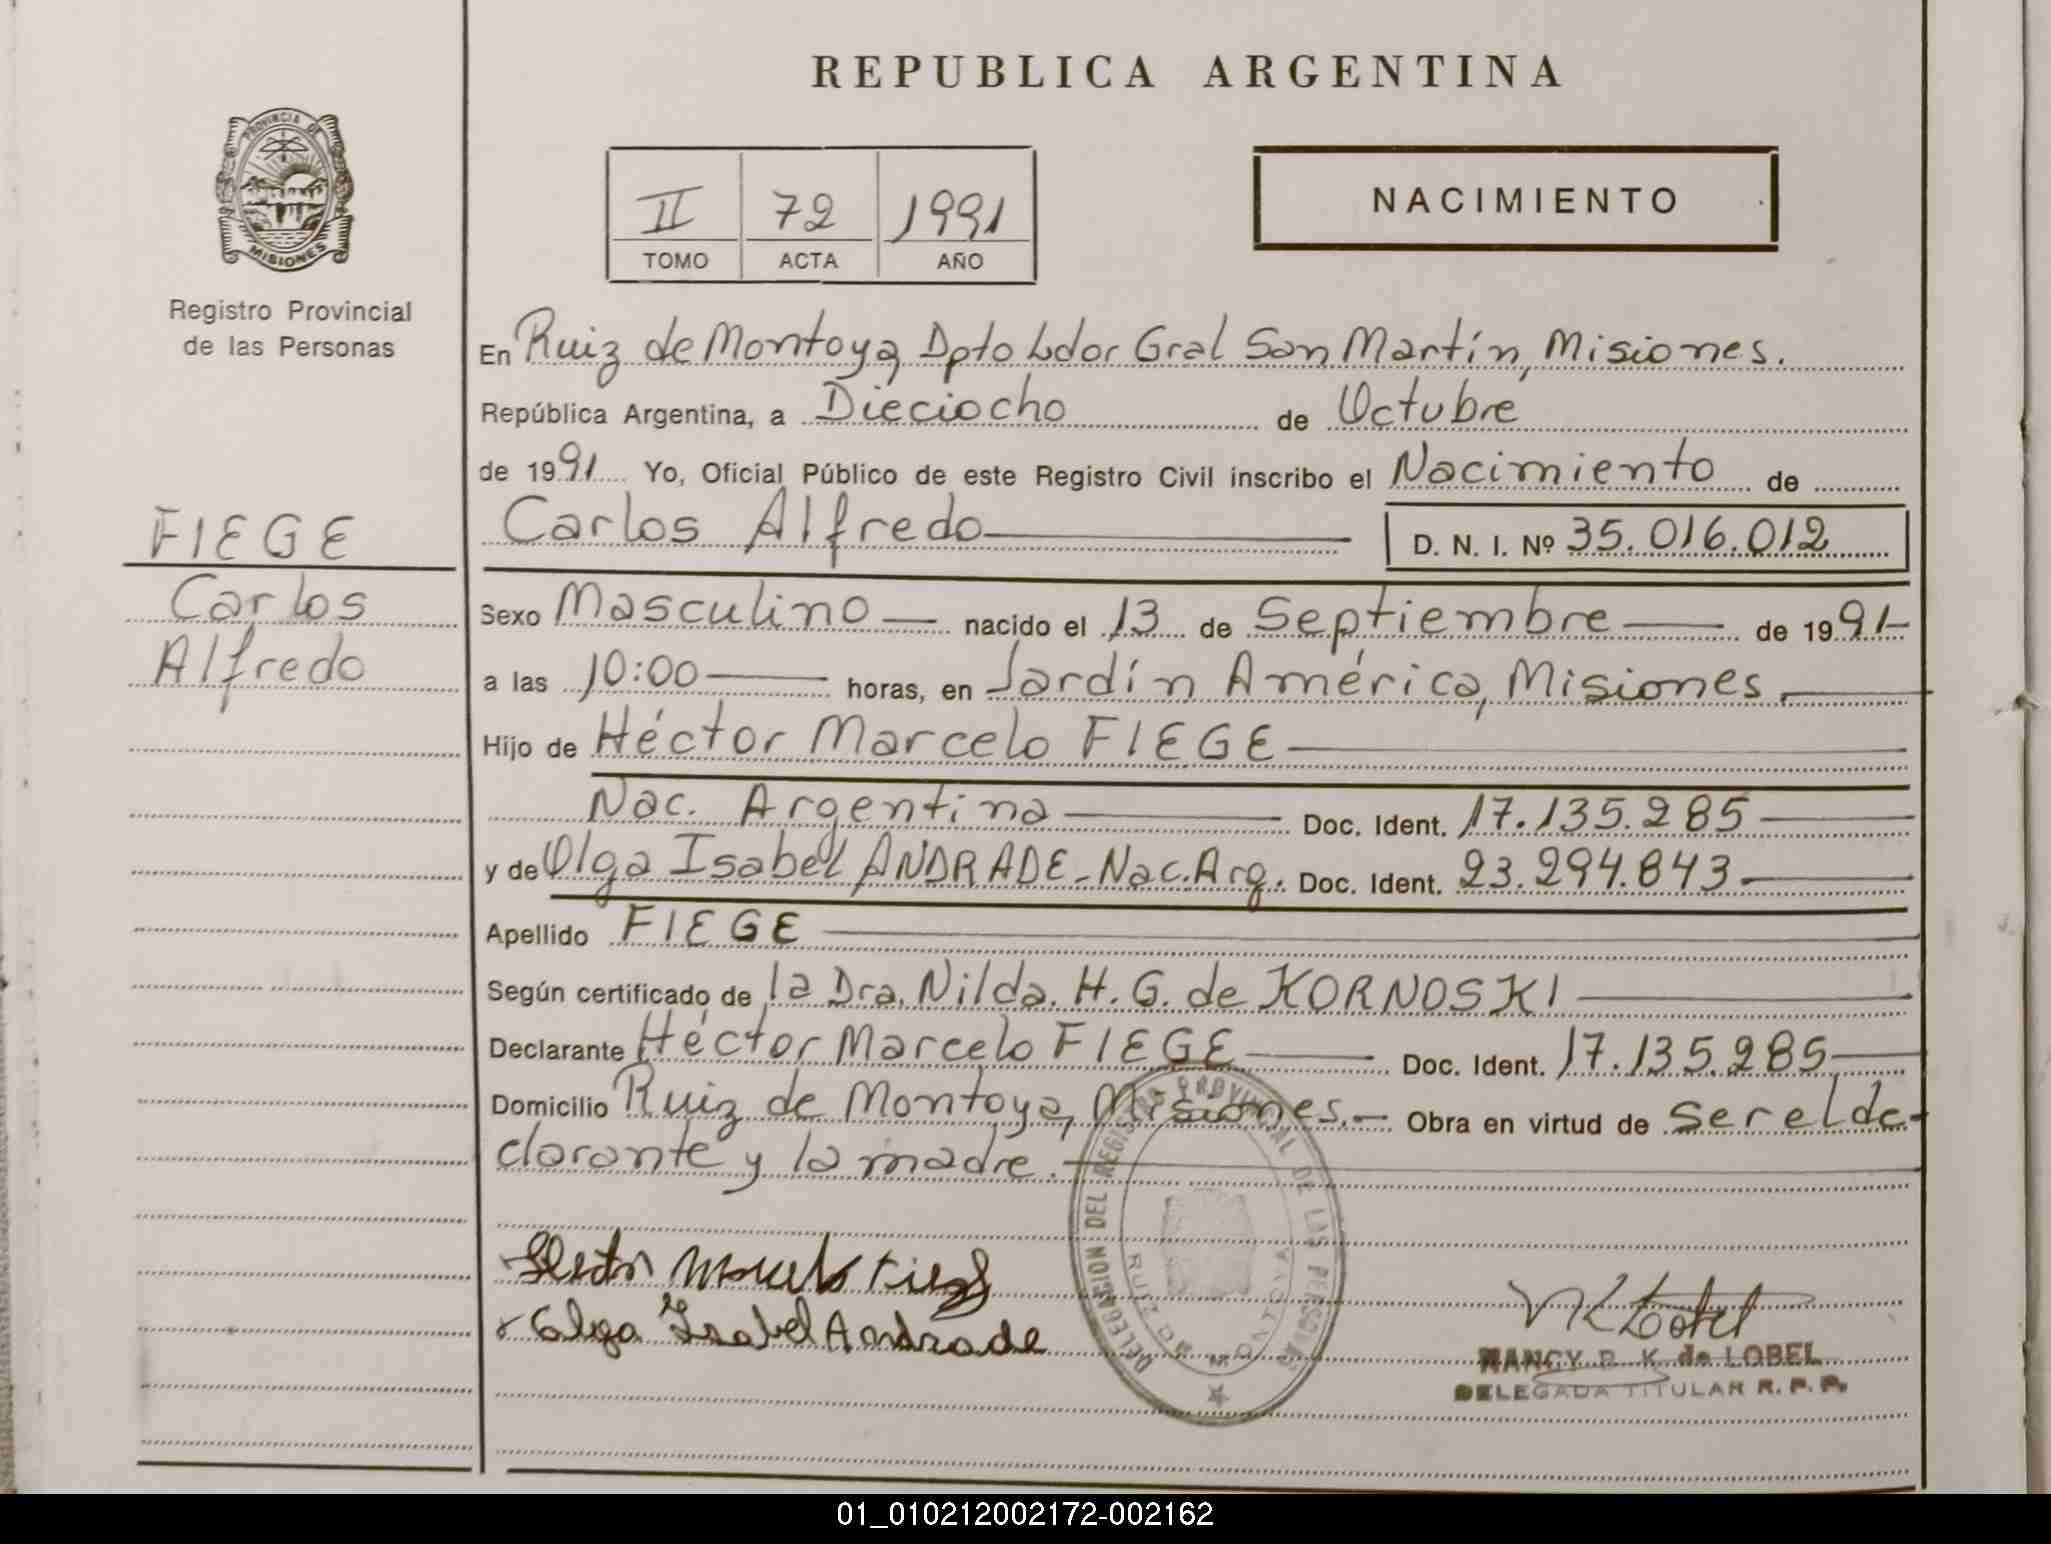 REPUBLICA ARGENTINA
PROVINCIA DE
MISIONES
Registro Provincial
de las Personas
II 72 1991
TOMO ACTA AÑO
NACIMIENTO
En Ruiz de Montoya, Dpto Ldor Gral San Martín, Misiones.
República Argentina, a Dieciocho de Octubre
de 1991 Yo, Oficial Público de este Registro Civil inscribo el Nacimiento de
Carlos Alfredo D. N. I. Nº 35.016.012
FIEGE
Carlos
Alfredo
Sexo Masculino nacido el 13 de Septiembre de 1991
a las 10:00 horas, en Jardín América, Misiones.
Hijo de Héctor Marcelo FIEGE
Nac. Argentina Doc. Ident. 17.135.285
y de Olga Isabel ANDRADE - Nac. Arg. Doc. Ident. 23.294.843
Apellido FIEGE
Según certificado de la Dra. Nilda. H. G. de KORNOSKI
Declarante Héctor Marcelo FIEGE Doc. Ident. 17.135.285
Domicilio Ruiz de Montoya, Misiones.- Obra en virtud de ser el de-
clarante y la madre.
DELEGACION DEL REGISTRO PROVINCIAL DE LAS PERSONAS
RUIZ DE MONTOYA
Hector Marcelo Fiege
Olga Isabel Andrade
NANCY R. K. de LOBEL
DELEGADA TITULAR R. P. P.
01_010212002172-002162